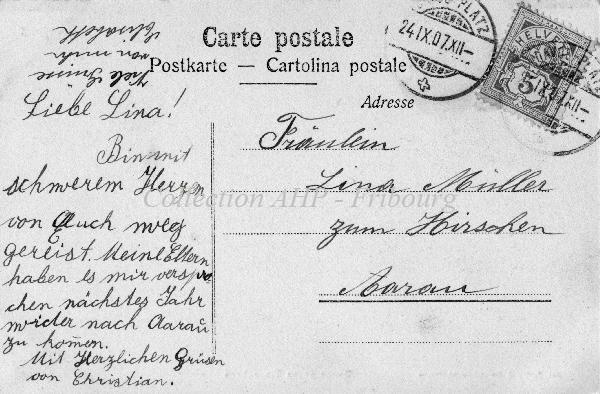 Carte postale
Postkarte — Cartolina postale
Adresse
PLATZ
24.IX.07.XII—
HELVETIA
5
Viele Grüsse
von mir
Elisabeth
Liebe Lina!
Bin mit
schwerem Herzen
von Euch weg
gereist. Meine Eltern
haben es mir verspro
chen nächstes Jahr
wider nach Aarau
zu kom̄en.
Mit Herzlichen Grüsen
von Christian.
Fräulein
Lina Müller
zum Hirschen
Aarau
Collection AHP - Fribourg